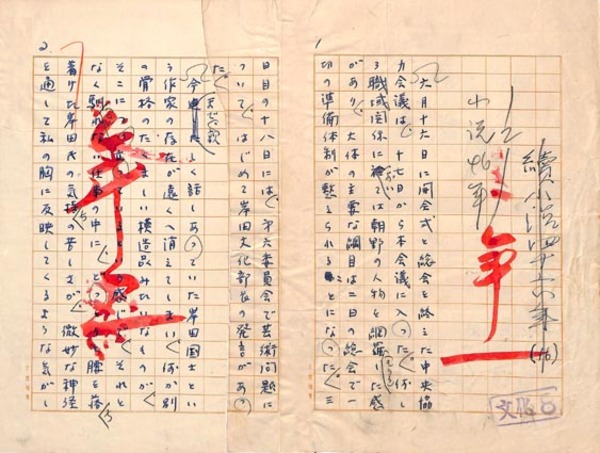 1
小説46年
六月十六日に開会式と総会を終えた中央協
力会議は、十七日から本会議に入った。併し
る職域関係に於ては朝野の人物を網羅した感
があり、大体の主要な綱目は二日の総会で一
切の準備体制が整えられることになった。三
文化 8
2
日目の十八日には、第六委員会で芸術問題に
ついてはじめて岸田文化部長の発言があっ
た。
しく話しあっていた岸田国士とい
う作家の存在が遠くへ消えてしまい、何か別
の骨格のたくましい模造品みたいなものが
そこに 感じで、それと
なく馴れない仕事の中に 腰を落
着けた岸田氏の気持の苦しさが、微妙な神経
を通して私の胸に反映してくるような気がし